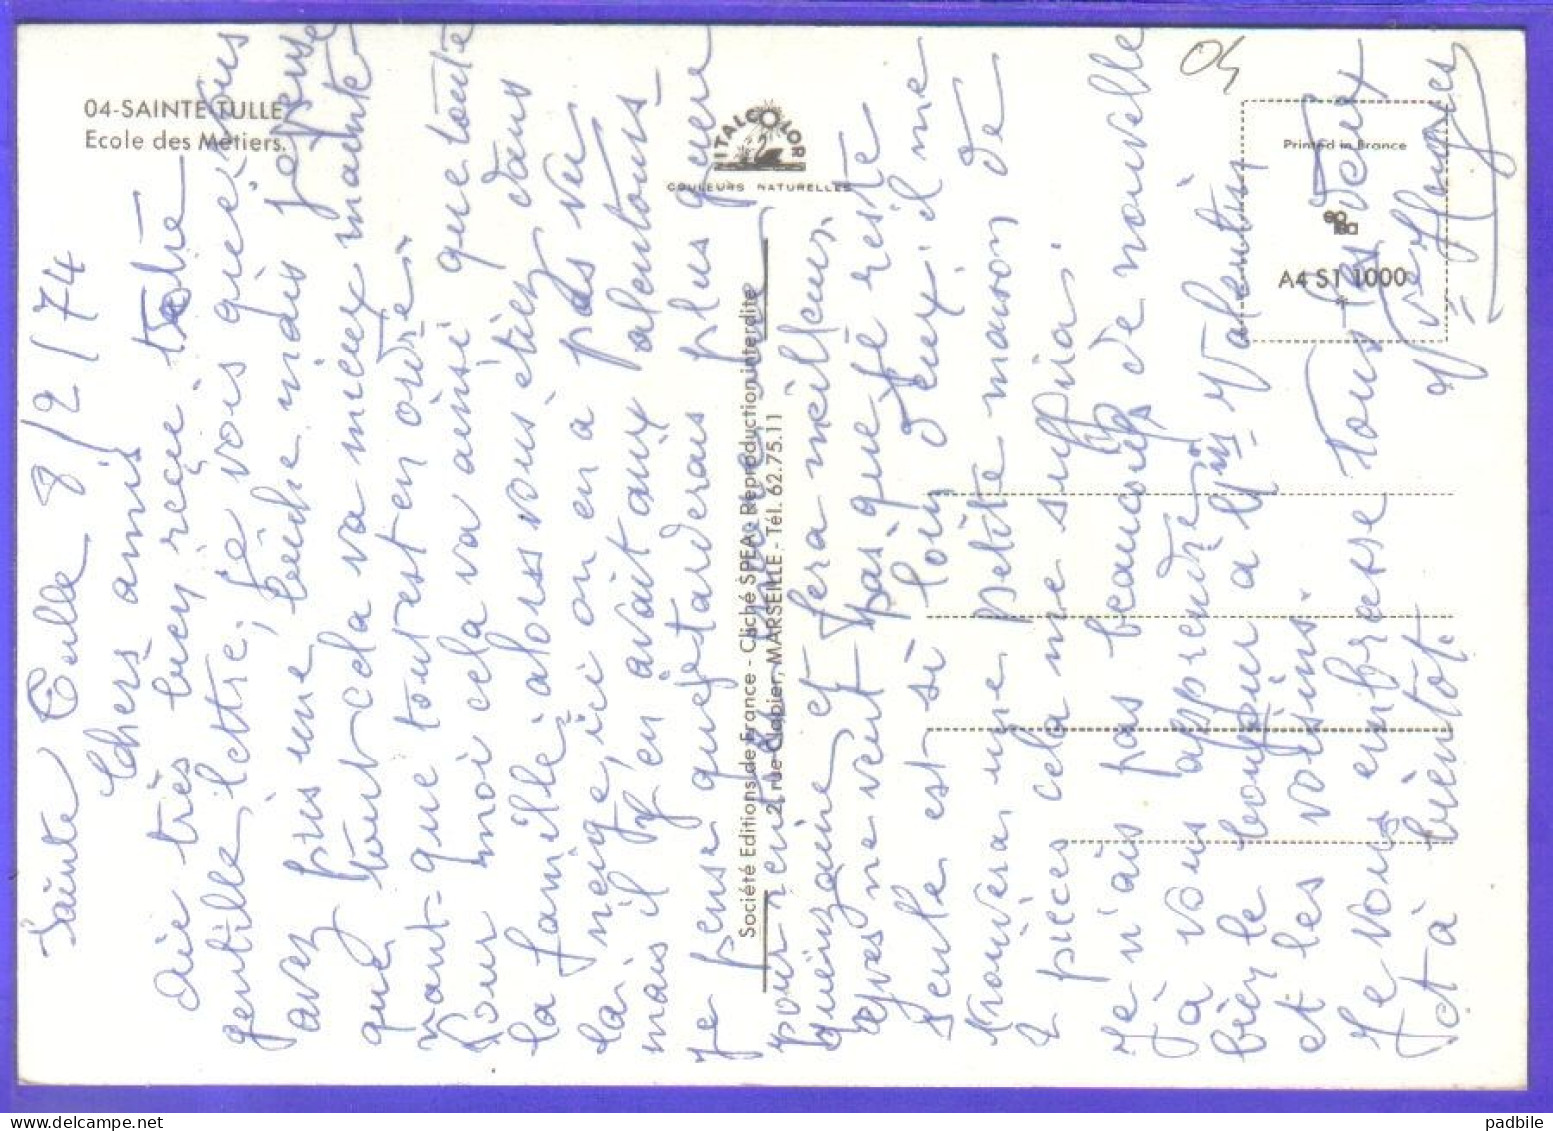 04-SAINTE TULLE
Ecole des Métiers.
ITALCOLOR
COULEURS NATURELLES
Printed in France
A4 S1 1000
*
04
Société Editions de France - Cliché SPEA - Reproduction interdite
2, rue Clapier, MARSEILLE - Tél. 62.75.11
Sainte Tulle 8/2/74
Chers amis
très bien reçue votre
gentille lettre, je vois que vous
avez pris une bûche mais j'espère
que tout cela va mieux mainte-
nant que tout est en ordre.
Pour moi cela va ainsi que toute
la famille, alors vous étiez dans
la neige, ici on en a pas vu
mais il y en avait aux alentours
Je pense que je tarderais plus guère
pour rentrer une
quinzaine et fera meilleur.
Yves ne veut pas que je reste
seule est si loin d'eux, il me
trouvera une petite maison de
2 pièces cela me suffira.
Je n'ais pas beaucoup de nouvelle
à vous apprendre
bien le bonjour à Mme Valentin
et les voisins.
Je vous embrasse tous les deux
et à bientôt.